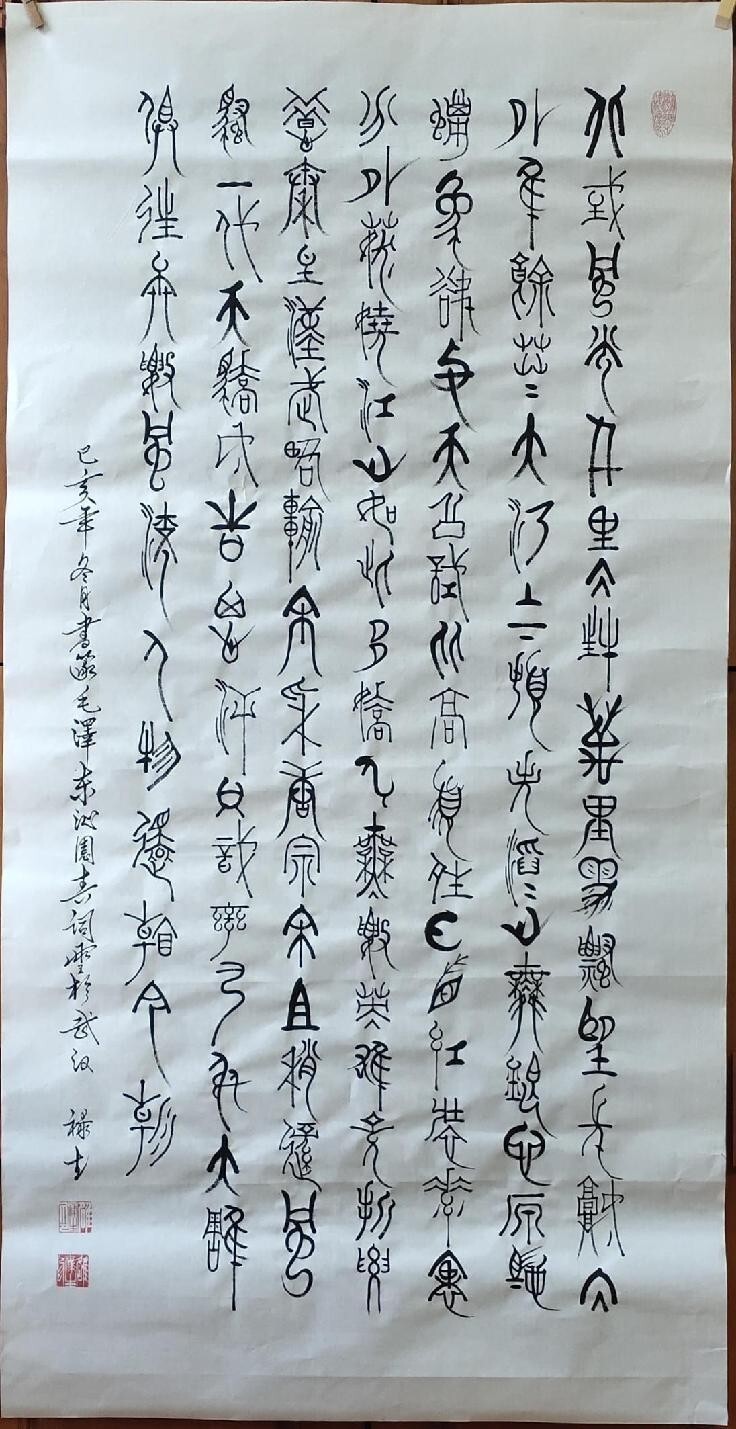 北國風光千里冰封萬里雪飄望長城內
外惟餘莽莽大河上下頓失滔滔山舞銀蛇原馳
蠟象欲與天公試比高須晴日看紅裝素裹
分外妖嬈江山如此多嬌引無數英雄競折腰
惜秦皇漢武略輸文采唐宗宋祖稍遜風
騷一代天驕成吉思汗只識彎弓射大雕
俱往矣數風流人物還看今朝
己亥年冬月書篆毛澤東沁園春詞雪於武汉